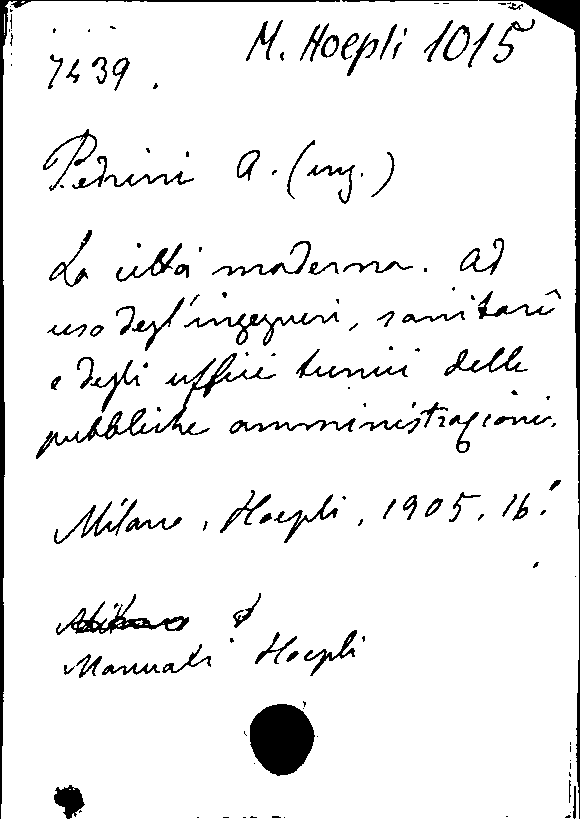 M. Hoepli 1015
7439.
Pedrini A. (ing.)
La città moderna. Ad
uso degl'ingegneri, sanitari
e degli uffici tecnici delle
pubbliche amministrazioni.
Milano, Hoepli, 1905, 16°.
Manuali Hoepli